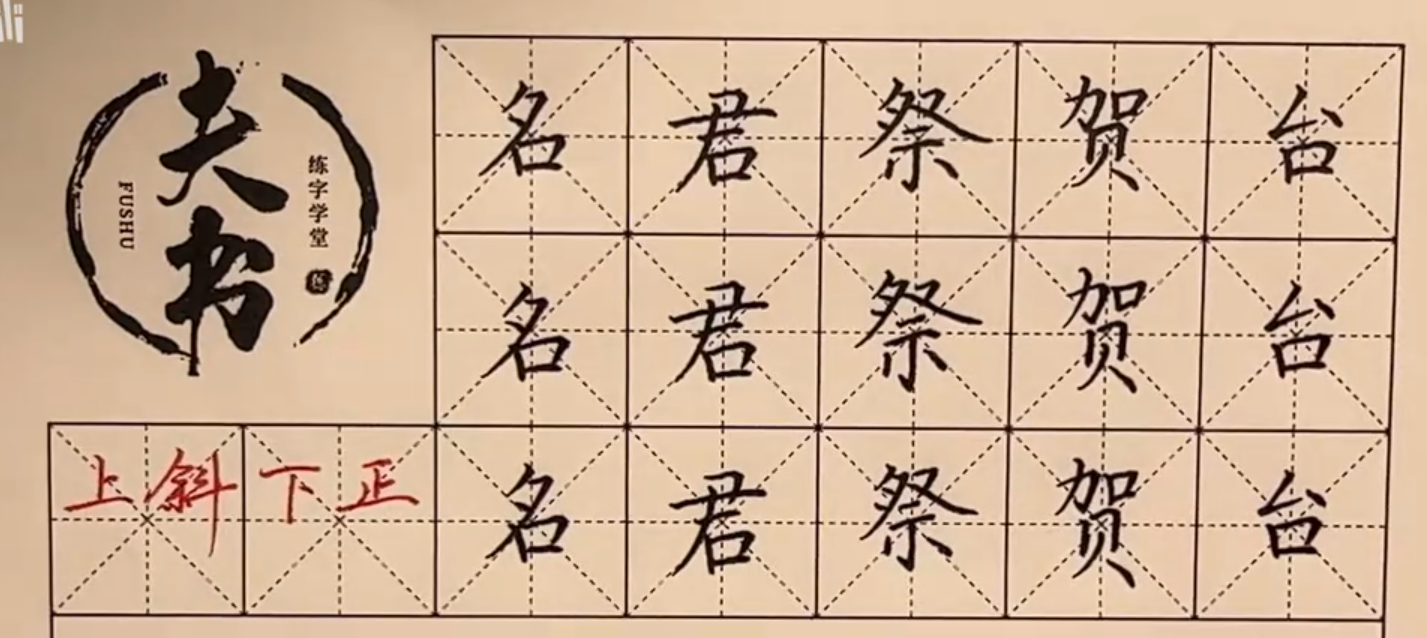 夫书
练字学堂
FUSHU
名君祭贺台
名君祭贺台
上斜下正
名君祭贺台